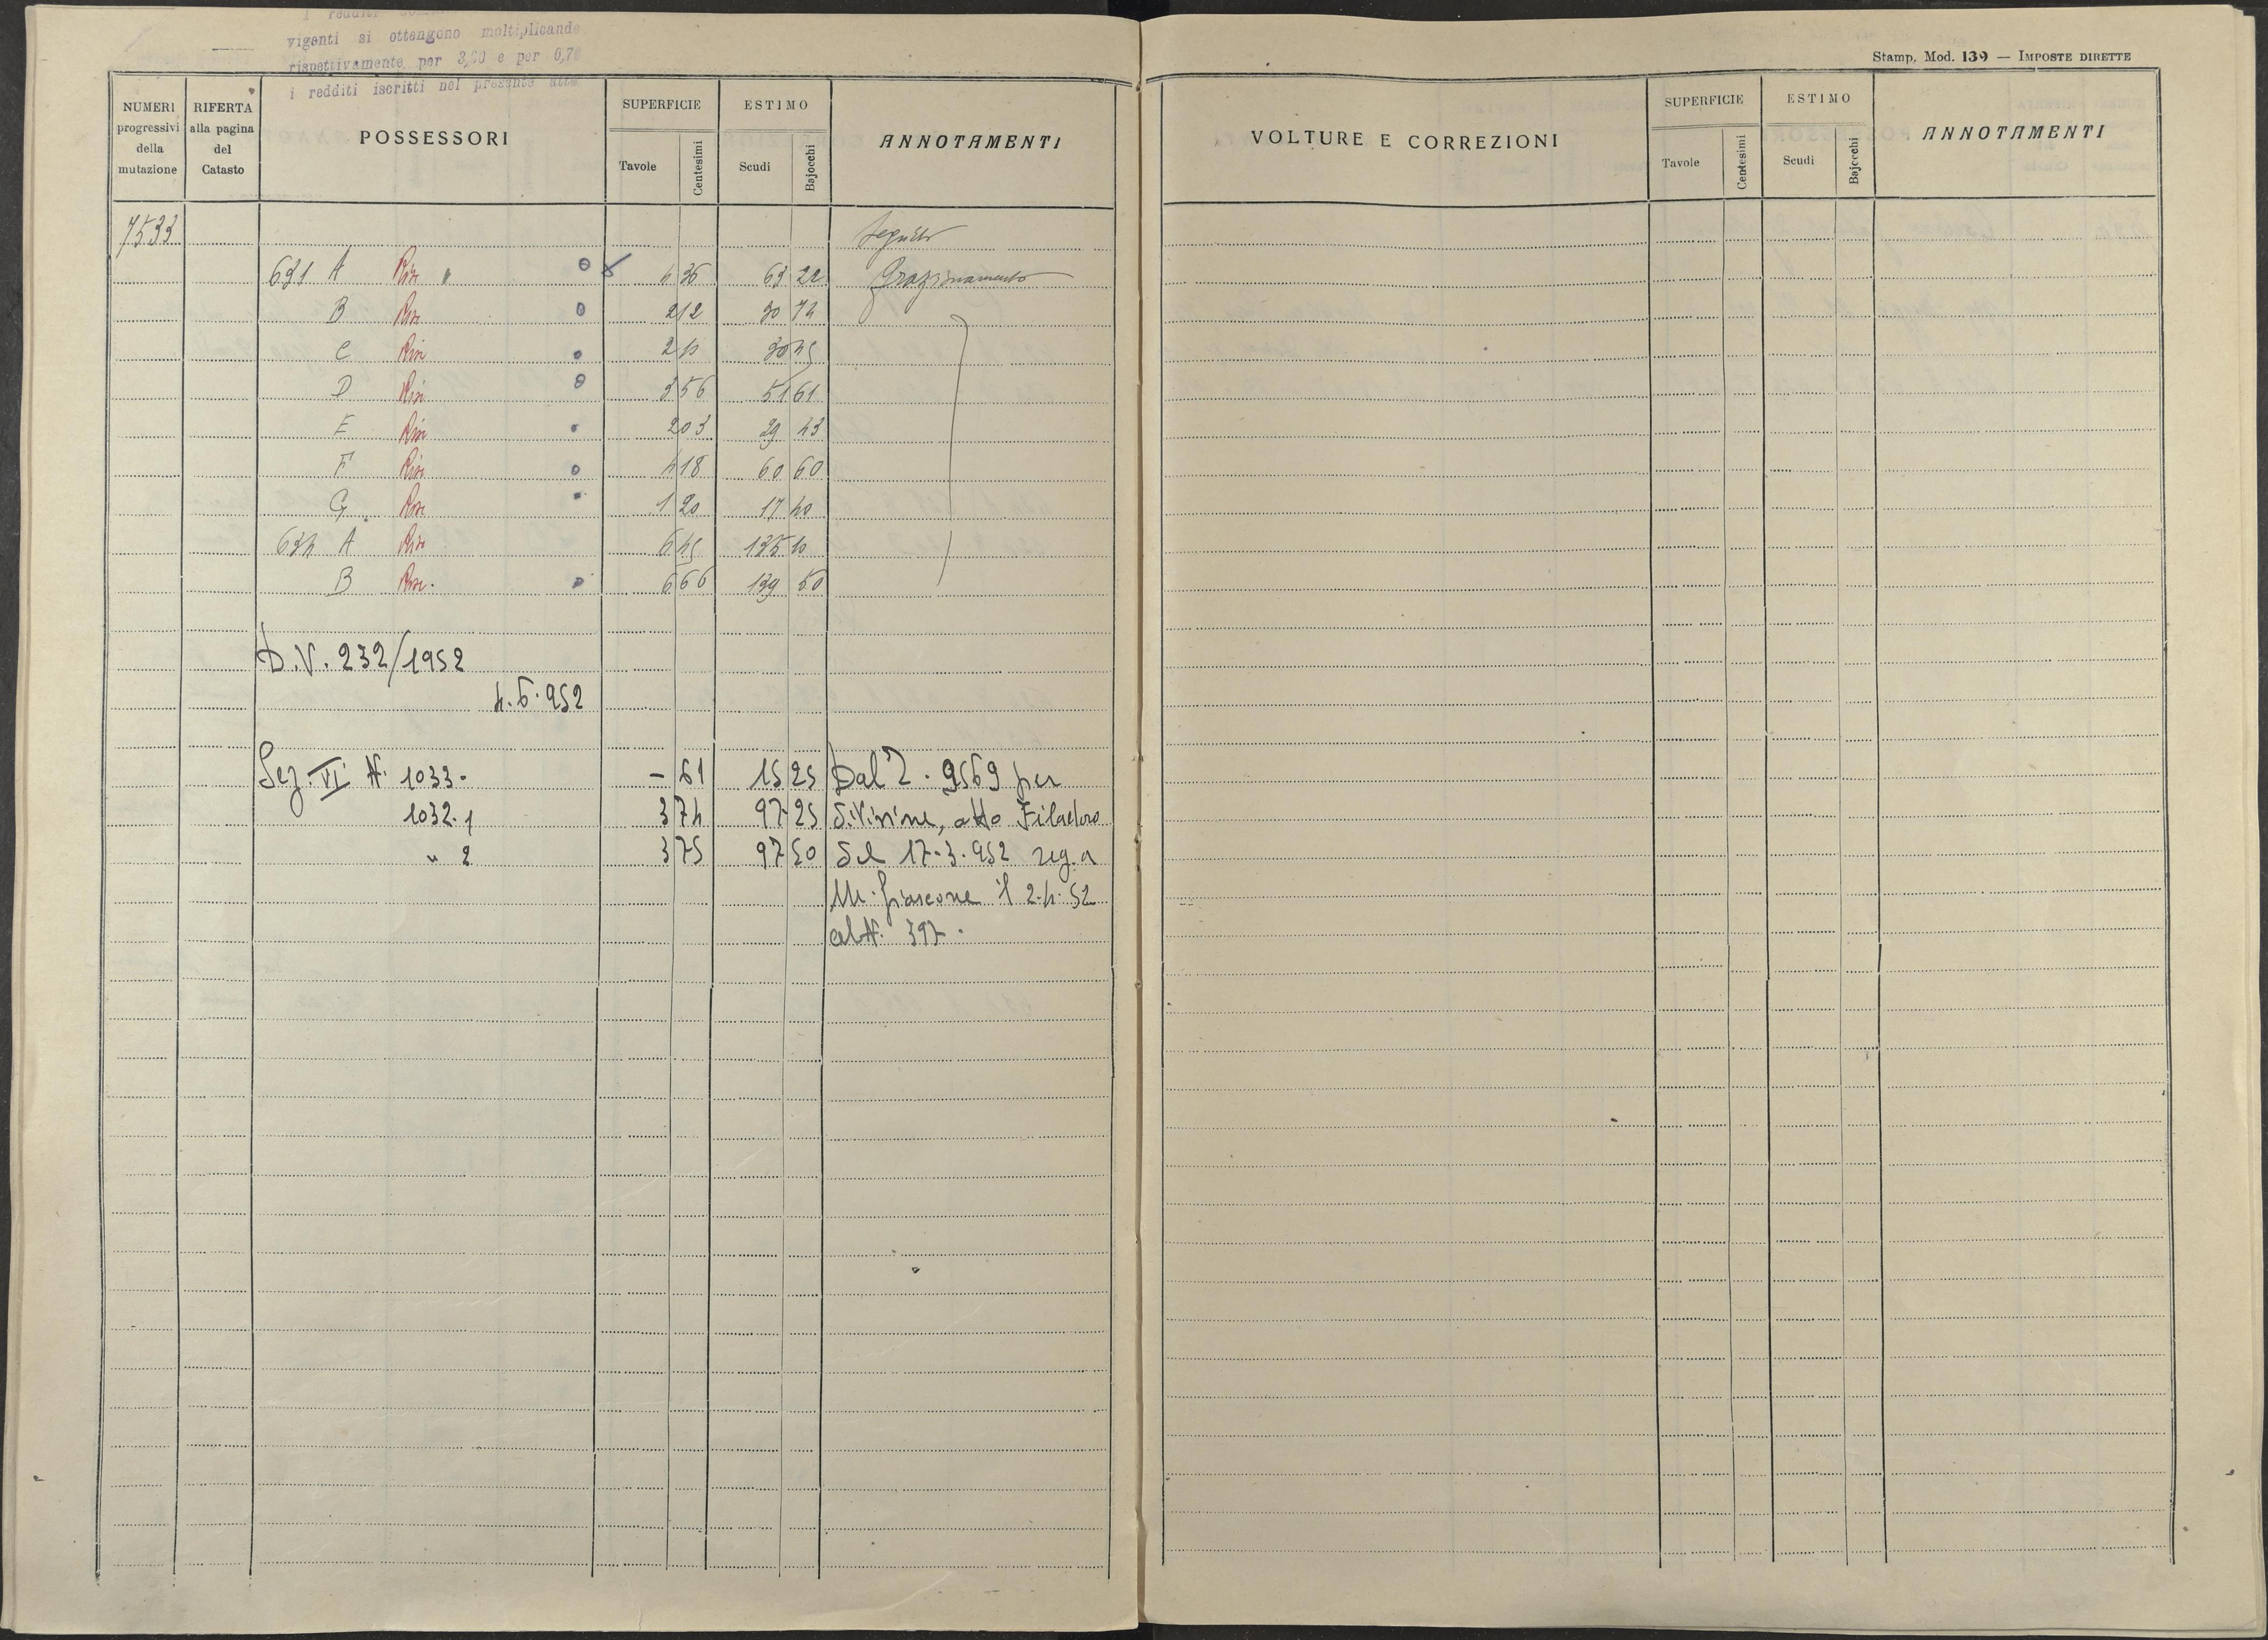 viganti si ottengono moltiplicando
rispettivamente per 3,00 e per 0,70
i redditi iscritti nel presente atto
NUMERI progressivi della mutazione
RIFERTA alla pagina del Catasto
POSSESSORI
SUPERFICIE
Tavole Centesimi
ESTIMO
Scudi Bajocchi
ANNOTAMENTI
7533 Seguito
631 A Ris " 4 36 63 22 frazionamento
B Ris 2 12 30 74
C Ris 2 10 30 45
D Ris 3 56 51 61
E Ris 2 03 29 43
F Ris 4 18 60 60
G Ris 1 20 17 40
634 A Ris 6 45 135 10
B Ris. 6 66 139 50
D.V. 232/1952
4.6.952
Sez. VI N. 1033. – 61 15 25 Dal 2. 9569 per
1032.1 3 74 97 25 divisione, atto Filadoro
" 2 3 75 97 50 del 17.3.952 reg. a
M. fiascone il 2.4.52
al N. 397.
Stamp. Mod. 139 — IMPOSTE DIRETTE
VOLTURE E CORREZIONI
SUPERFICIE
Tavole Centesimi
ESTIMO
Scudi Bajocchi
ANNOTAMENTI